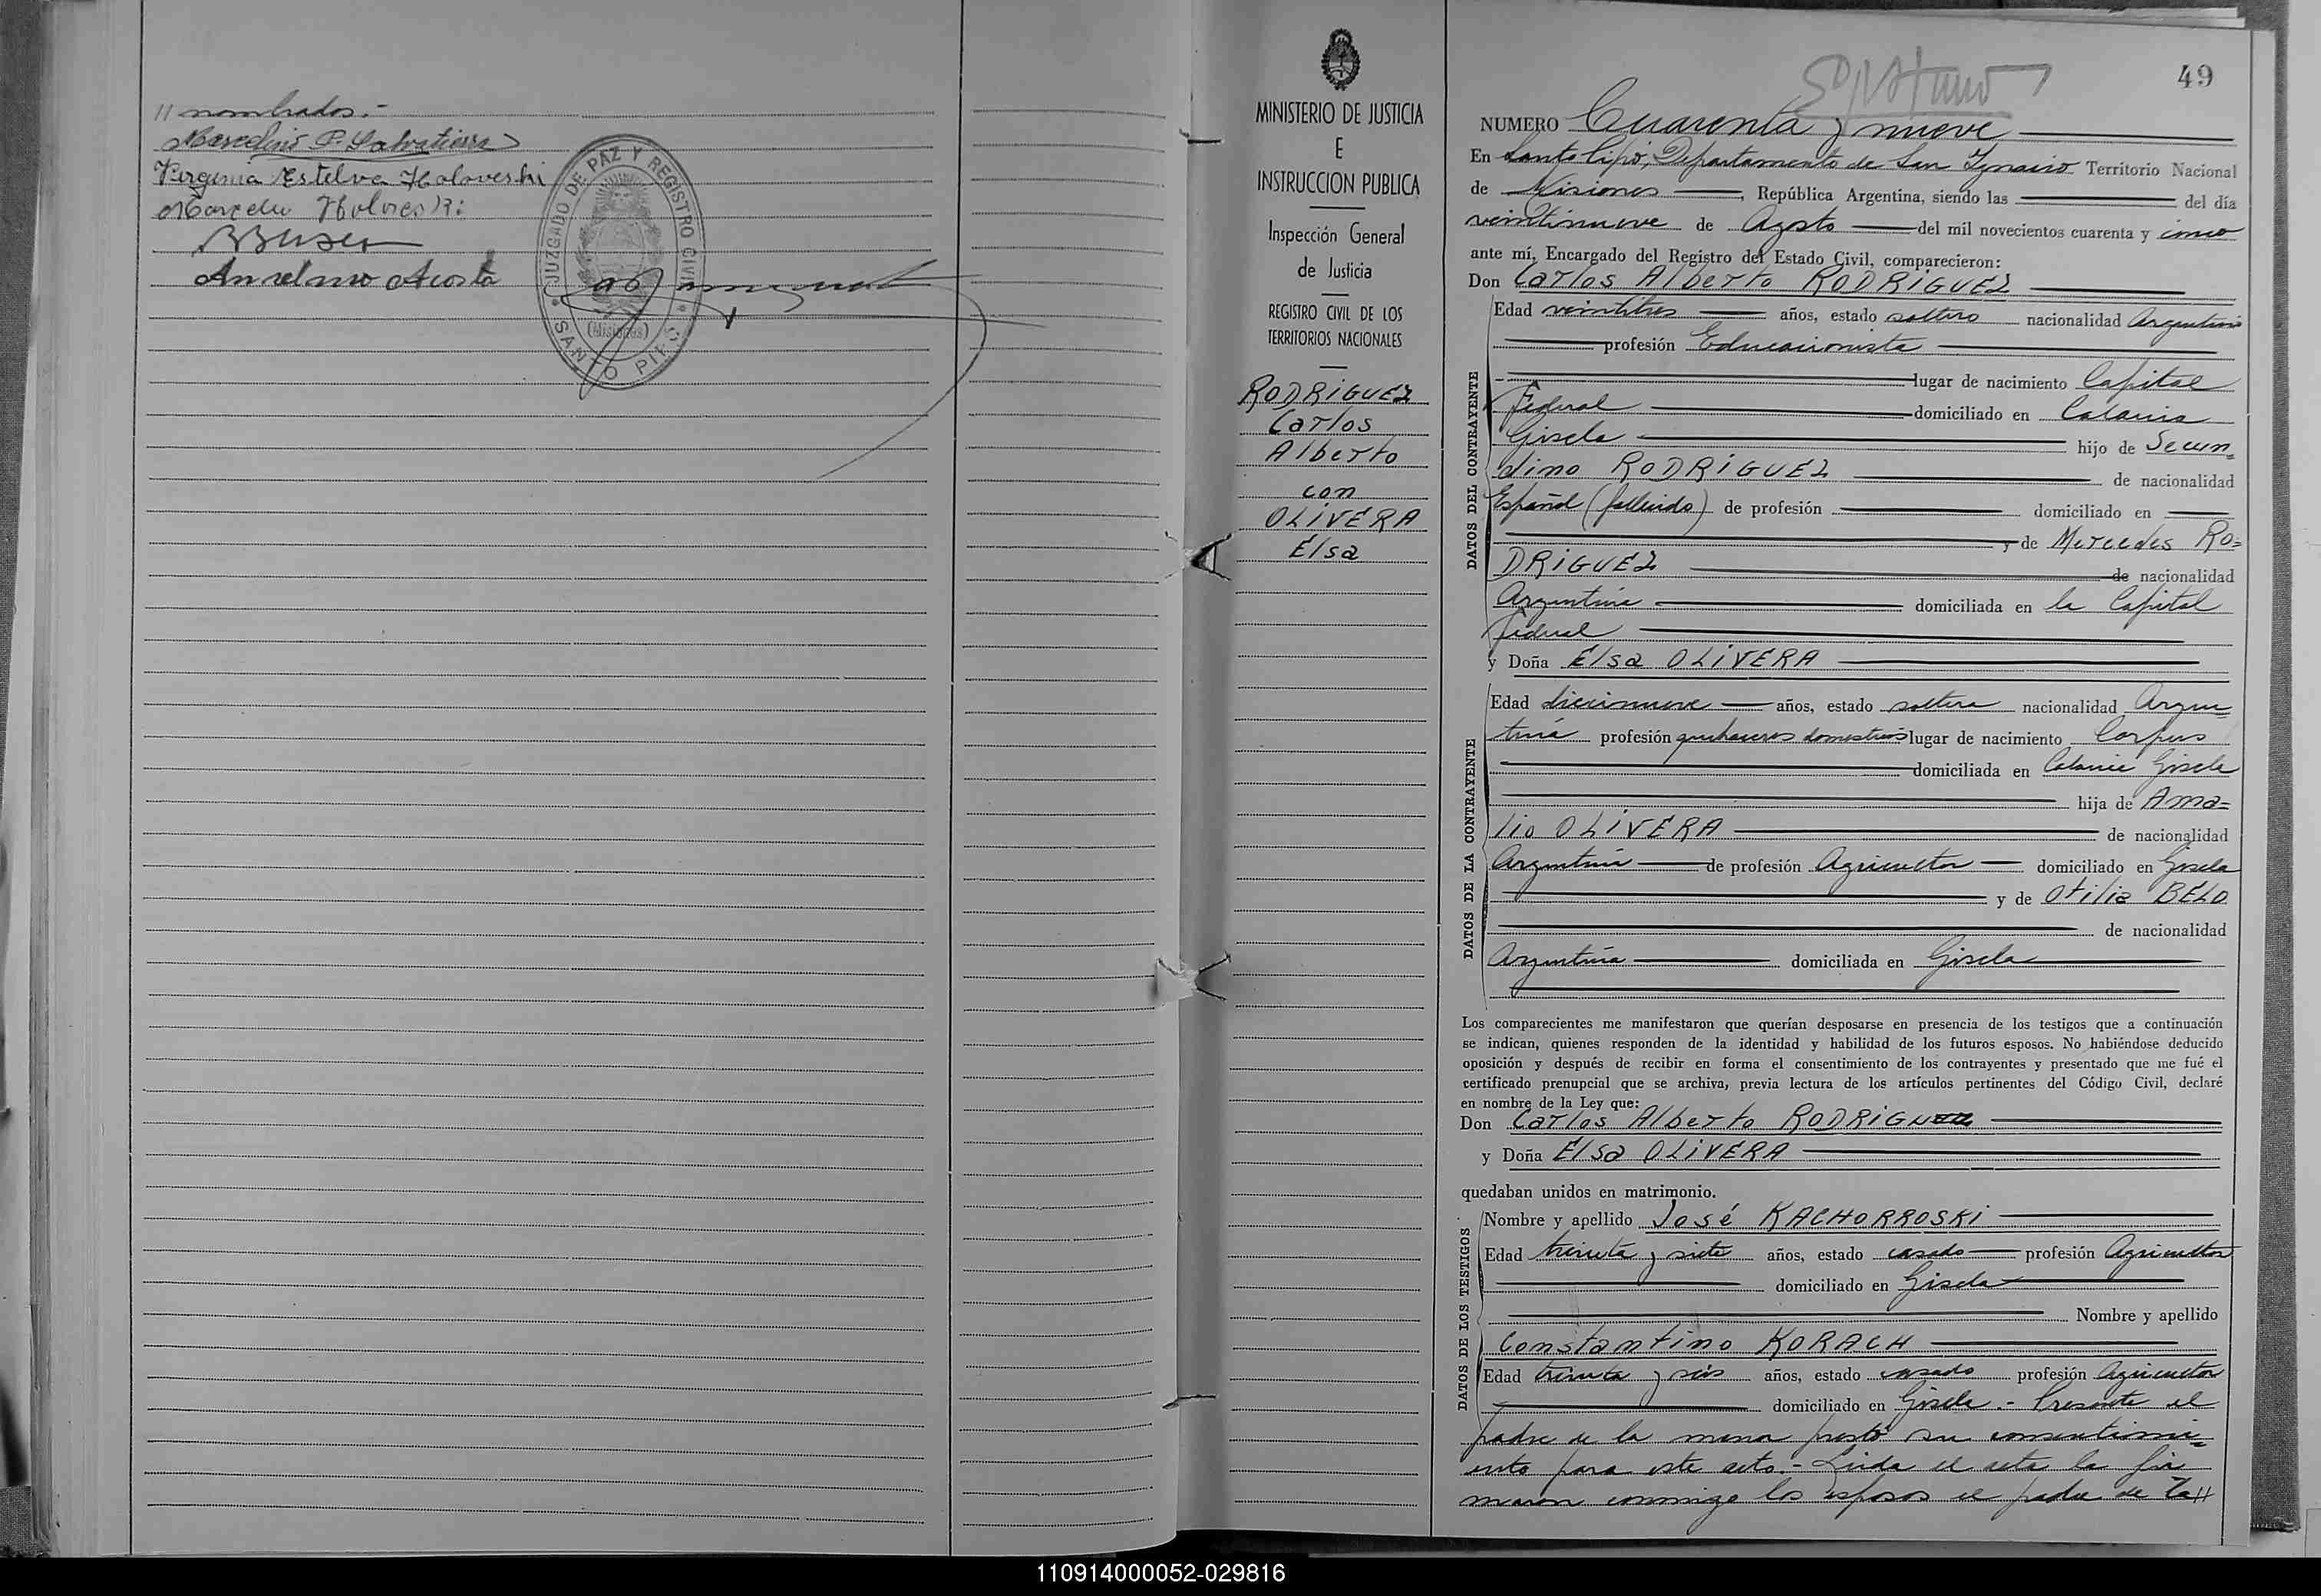 // nombrados.-
Marcelino P. Salvatierra
Virginia Estelva Holoveski
Marcelu Holoveski
Anselmo Acosta
JUZGADO DE PAZ Y REGISTRO CIVIL
(Misiones)
SANTO PIPÓ
MINISTERIO DE JUSTICIA
E
INSTRUCCION PUBLICA
Inspección General
de Justicia
REGISTRO CIVIL DE LOS
TERRITORIOS NACIONALES
RODRIGUEZ
Carlos
Alberto
con
OLIVERA
Elsa
49
NUMERO Cuarenta y nueve
En Santo Pipó, Departamento de San Ignacio Territorio Nacional
de Misiones, República Argentina, siendo las del día
veintinueve de Agosto del mil novecientos cuarenta y cinco
ante mí, Encargado del Registro del Estado Civil, comparecieron:
Don Carlos Alberto RODRIGUEZ
DATOS DEL CONTRAYENTE
Edad veintitres años, estado soltero nacionalidad Argentino
profesión Educacionista
lugar de nacimiento Capital
Federal domiciliado en Colonia
Gisela hijo de Secun=
dino RODRIGUEZ de nacionalidad
Español (fallecido) de profesión domiciliado en
y de Mercedes RO=
DRIGUEZ de nacionalidad
Argentina domiciliada en la Capital
Federal
y Doña Elsa OLIVERA
DATOS DE LA CONTRAYENTE
Edad diecinueve años, estado soltera nacionalidad Argen
tina profesión quehaceres domesticos lugar de nacimiento Corpus
domiciliada en Colonia Gisela
hija de Ama=
lio OLIVERA de nacionalidad
Argentina de profesión Agricultor domiciliado en Gisela
y de Otilia BELO
de nacionalidad
Argentina domiciliada en Gisela
Los comparecientes me manifestaron que querían desposarse en presencia de los testigos que a continuación
se indican, quienes responden de la identidad y habilidad de los futuros esposos. No habiéndose deducido
oposición y después de recibir en forma el consentimiento de los contrayentes y presentado que me fué el
certificado prenupcial que se archiva, previa lectura de los artículos pertinentes del Código Civil, declaré
en nombre de la Ley que:
Don Carlos Alberto RODRIGUEZ
y Doña Elsa OLIVERA
quedaban unidos en matrimonio.
DATOS DE LOS TESTIGOS
Nombre y apellido José KACHORROSKI
Edad treinta y siete años, estado casado profesión Agricultor
domiciliado en Gisela
Nombre y apellido
Constantino KORACH
Edad treinta y seis años, estado casado profesión Agricultor
domiciliado en Gisela.- Presente el
padre de la menor prestó su consentimi=
ento para este acto.- Leida el acta la fir
maron conmigo los esposos el padre de la//
110914000052-029816